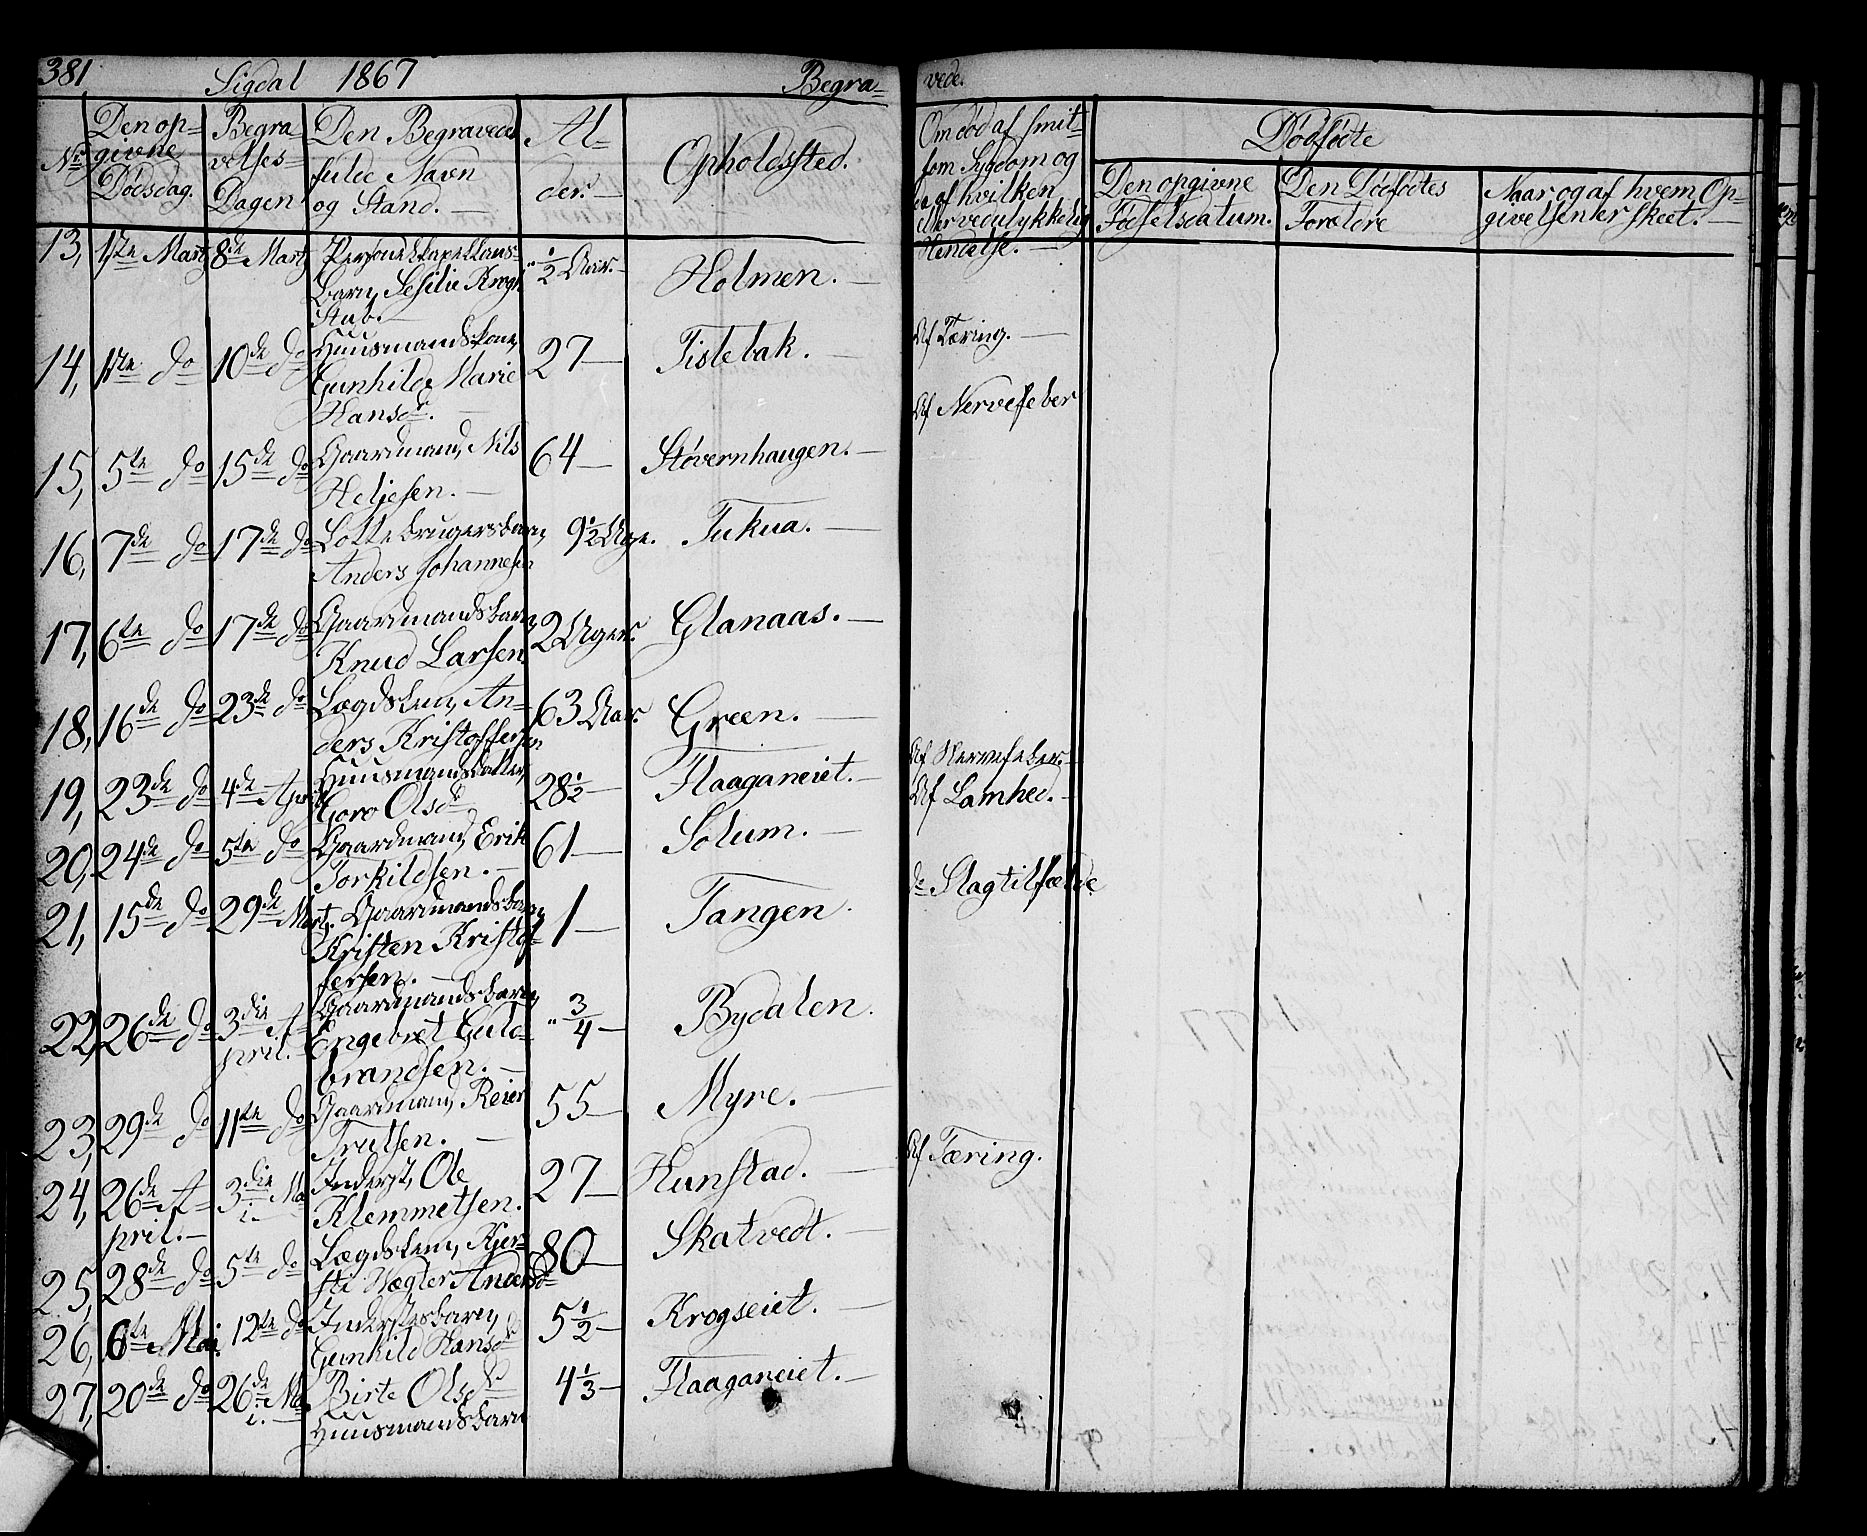 381 Sigdal 1867 Begra-
vede.
No. Den op-
givne
Dødsdag.
Begra
velses-
Dagen
Den Begravedes
fulde Navn
og Stand. —
Al-
der. —
Opholdssted.
Om død af smit-
som Sygdom og
af hvilken
eller ved ulykkelig
Hendelse. —
Dødfødte
Den opgivne
Fødselsdatum.
Den Dødfødtes
Forældre
Naar og af hvem Op-
givelsen er skeet. —
13, 1ste Marts 8de Marts Personelkapellans-
barn, Sesilie Krogh
Stub. — " 1/2 Aar. — Holmen. —
14, 1ste do 10de do Huusmandskone,
Gunhilde Marie
Hansdr. — 27 — Tistebak. — Af Tæring. —
15, 5te do 15de do Gaardmand, Nils
Heljesen. — 64 — Støvernhaugen. — Af Nervefeber
16, 7de do 17de do Lottebrugersbarn,
Anders Johannesen 9 1/2 Uge. Tukua. —
17, 6te do 17de do Gaardmandsbarn,
Knud Larsen 2 Uger. Glanaas. —
18, 16de do 23de do Lægdslem, An-
ders Kristoffersen 63 Aar. Green. —
19, 23de do 4de April Huusmandsdatter,
Goro Olsdr 28 1/2 — Haaganeiet. — Af Nervefeber. —
20, 24de do 5te do Gaardmand, Erik
Torkildsen. — 61 — Solum. — Af Lamhed. —
21, 15de do 29de Marts. Gaardmandsbarn,
Kristen Kristof-
fersen. — 1 — Tangen. do Slagtilfælde
22, 26de do 3die A-
pril. — Gaardmandsbarn,
Engebret Guld-
brandsen. — " 3/4 — Bydalen.
23, 29de do 11te do Gaardmand, Reier
Trulsen. — 55 — Myre. —
24, 26de A-
pril. — 3die Ma
i. — Inderst, Ole
Klemmetsen. 27 — Kunstad. — Af Tæring.
25, 28de do 5te do Lægdslem, Kjer-
sti Vægler Andersdr 80 — Skatvedt. —
26, 6te Mai 12te do Inderstesbarn,
Gunhild Hansdr 5 1/2 — Krogseiet. —
27, 20de do 26de Ma
i. — Birte Olsdr
Huusmandsbarn 4 1/3 — Haaganeiet. —